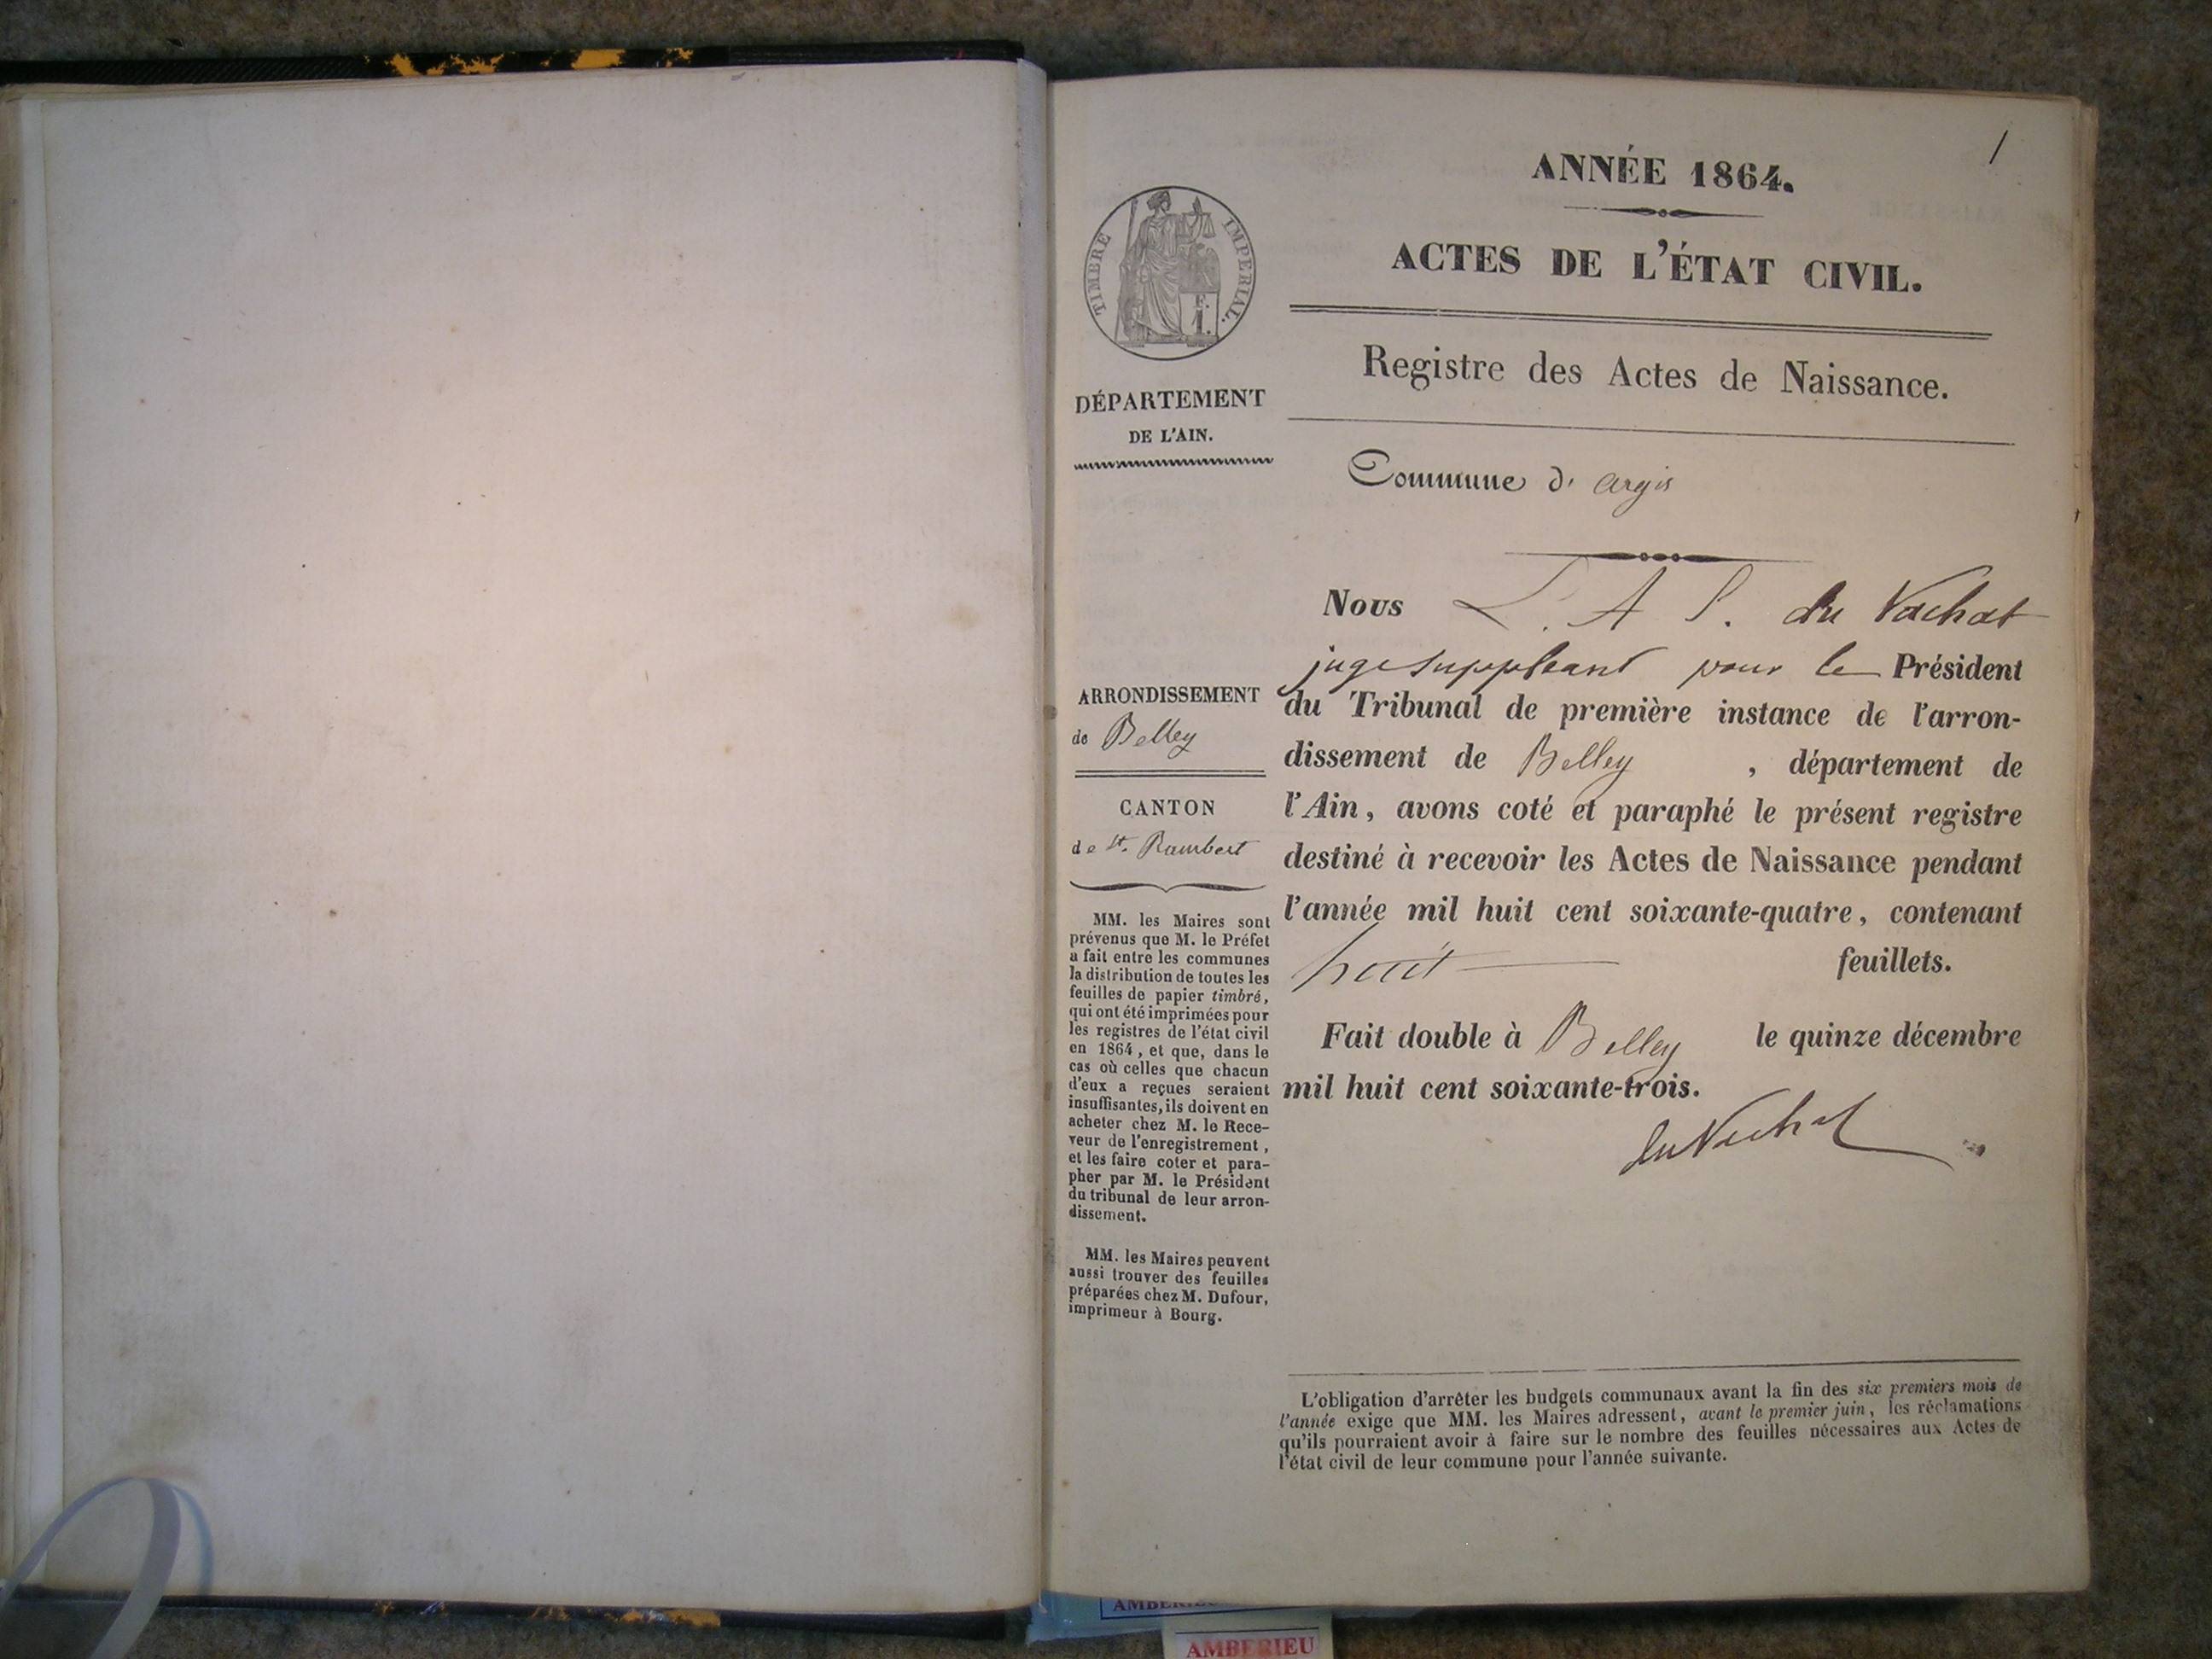 1
ANNÉE 1864.
ACTES DE L'ÉTAT CIVIL.
Registre des Actes de Naissance.
Commune d' argis
TIMBRE IMPERIAL.
1 F.
DÉPARTEMENT
DE L'AIN.
ARRONDISSEMENT
de Belley
CANTON
de St. Rambert
MM. les Maires sont
prévenus que M. le Préfet
a fait entre les communes
la distribution de toutes les
feuilles de papier timbré,
qui ont été imprimées pour
les registres de l'état civil
en 1864, et que, dans le
cas où celles que chacun
d'eux a reçues seraient
insuffisantes, ils doivent en
acheter chez M. le Rece-
veur de l'enregistrement,
et les faire coter et para-
pher par M. le Président
du tribunal de leur arron-
dissement.
MM. les Maires peuvent
aussi trouver des feuilles
préparées chez M. Dufour,
imprimeur à Bourg.
Nous L. A P. du Vachat
juge suppléant pour le Président
du Tribunal de première instance de l'arron-
dissement de Belley , département de
l'Ain, avons coté et paraphé le présent registre
destiné à recevoir les Actes de Naissance pendant
l'année mil huit cent soixante-quatre, contenant
huit feuillets.
Fait double à Belley le quinze décembre
mil huit cent soixante-trois.
du Vachat
L'obligation d'arrêter les budgets communaux avant la fin des six premiers mois de
l'année exige que MM. les Maires adressent, avant le premier juin, les réclamations
qu'ils pourraient avoir à faire sur le nombre des feuilles nécessaires aux Actes de
l'état civil de leur commune pour l'année suivante.
AMBERIEU